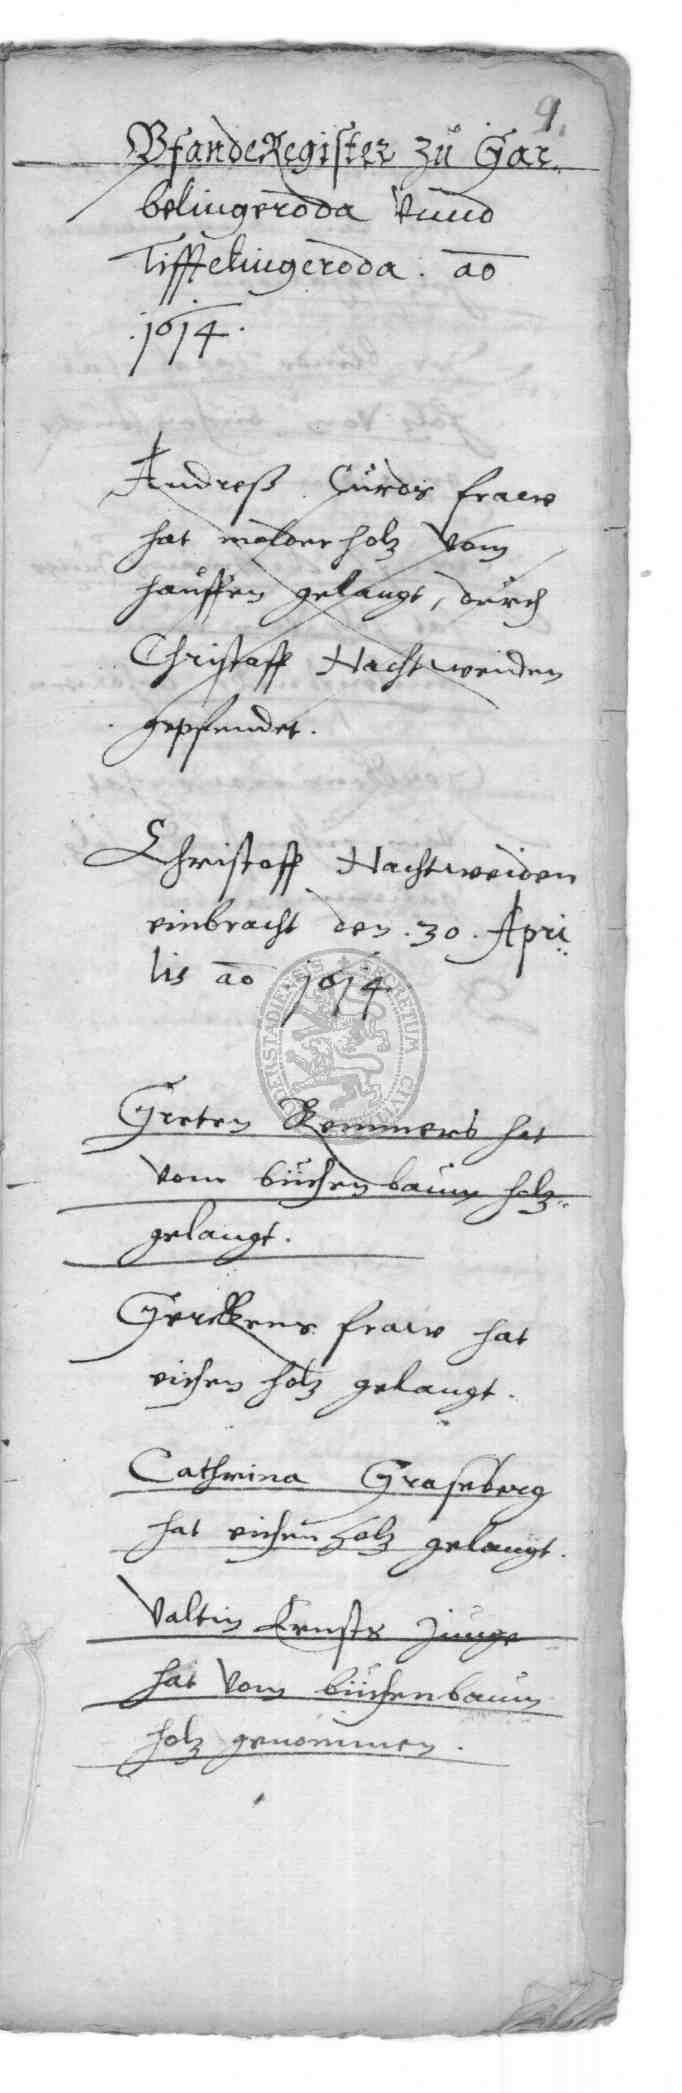 9.
PfandeRegister zu Gar
belingeroda vnnd
Tifftelingeroda. ao
.1614.
Andreß Curdts fraw
hat molder holz vom
hauffen gelangt, durch
Christoff Nachtweiden
gepfendet.
Christoff Nachtweiden
einbracht den .30. Apri
lis ao 1614
Greten Remmers hat
vom büchen baum holz
gelangt.
Gerckens fraw hat
eichen holz gelangt.
Cathrina Graseberg
hat eichen holz gelangt.
Valtin Ernsts Junge
hat vom büchenbaum
holz genommen.